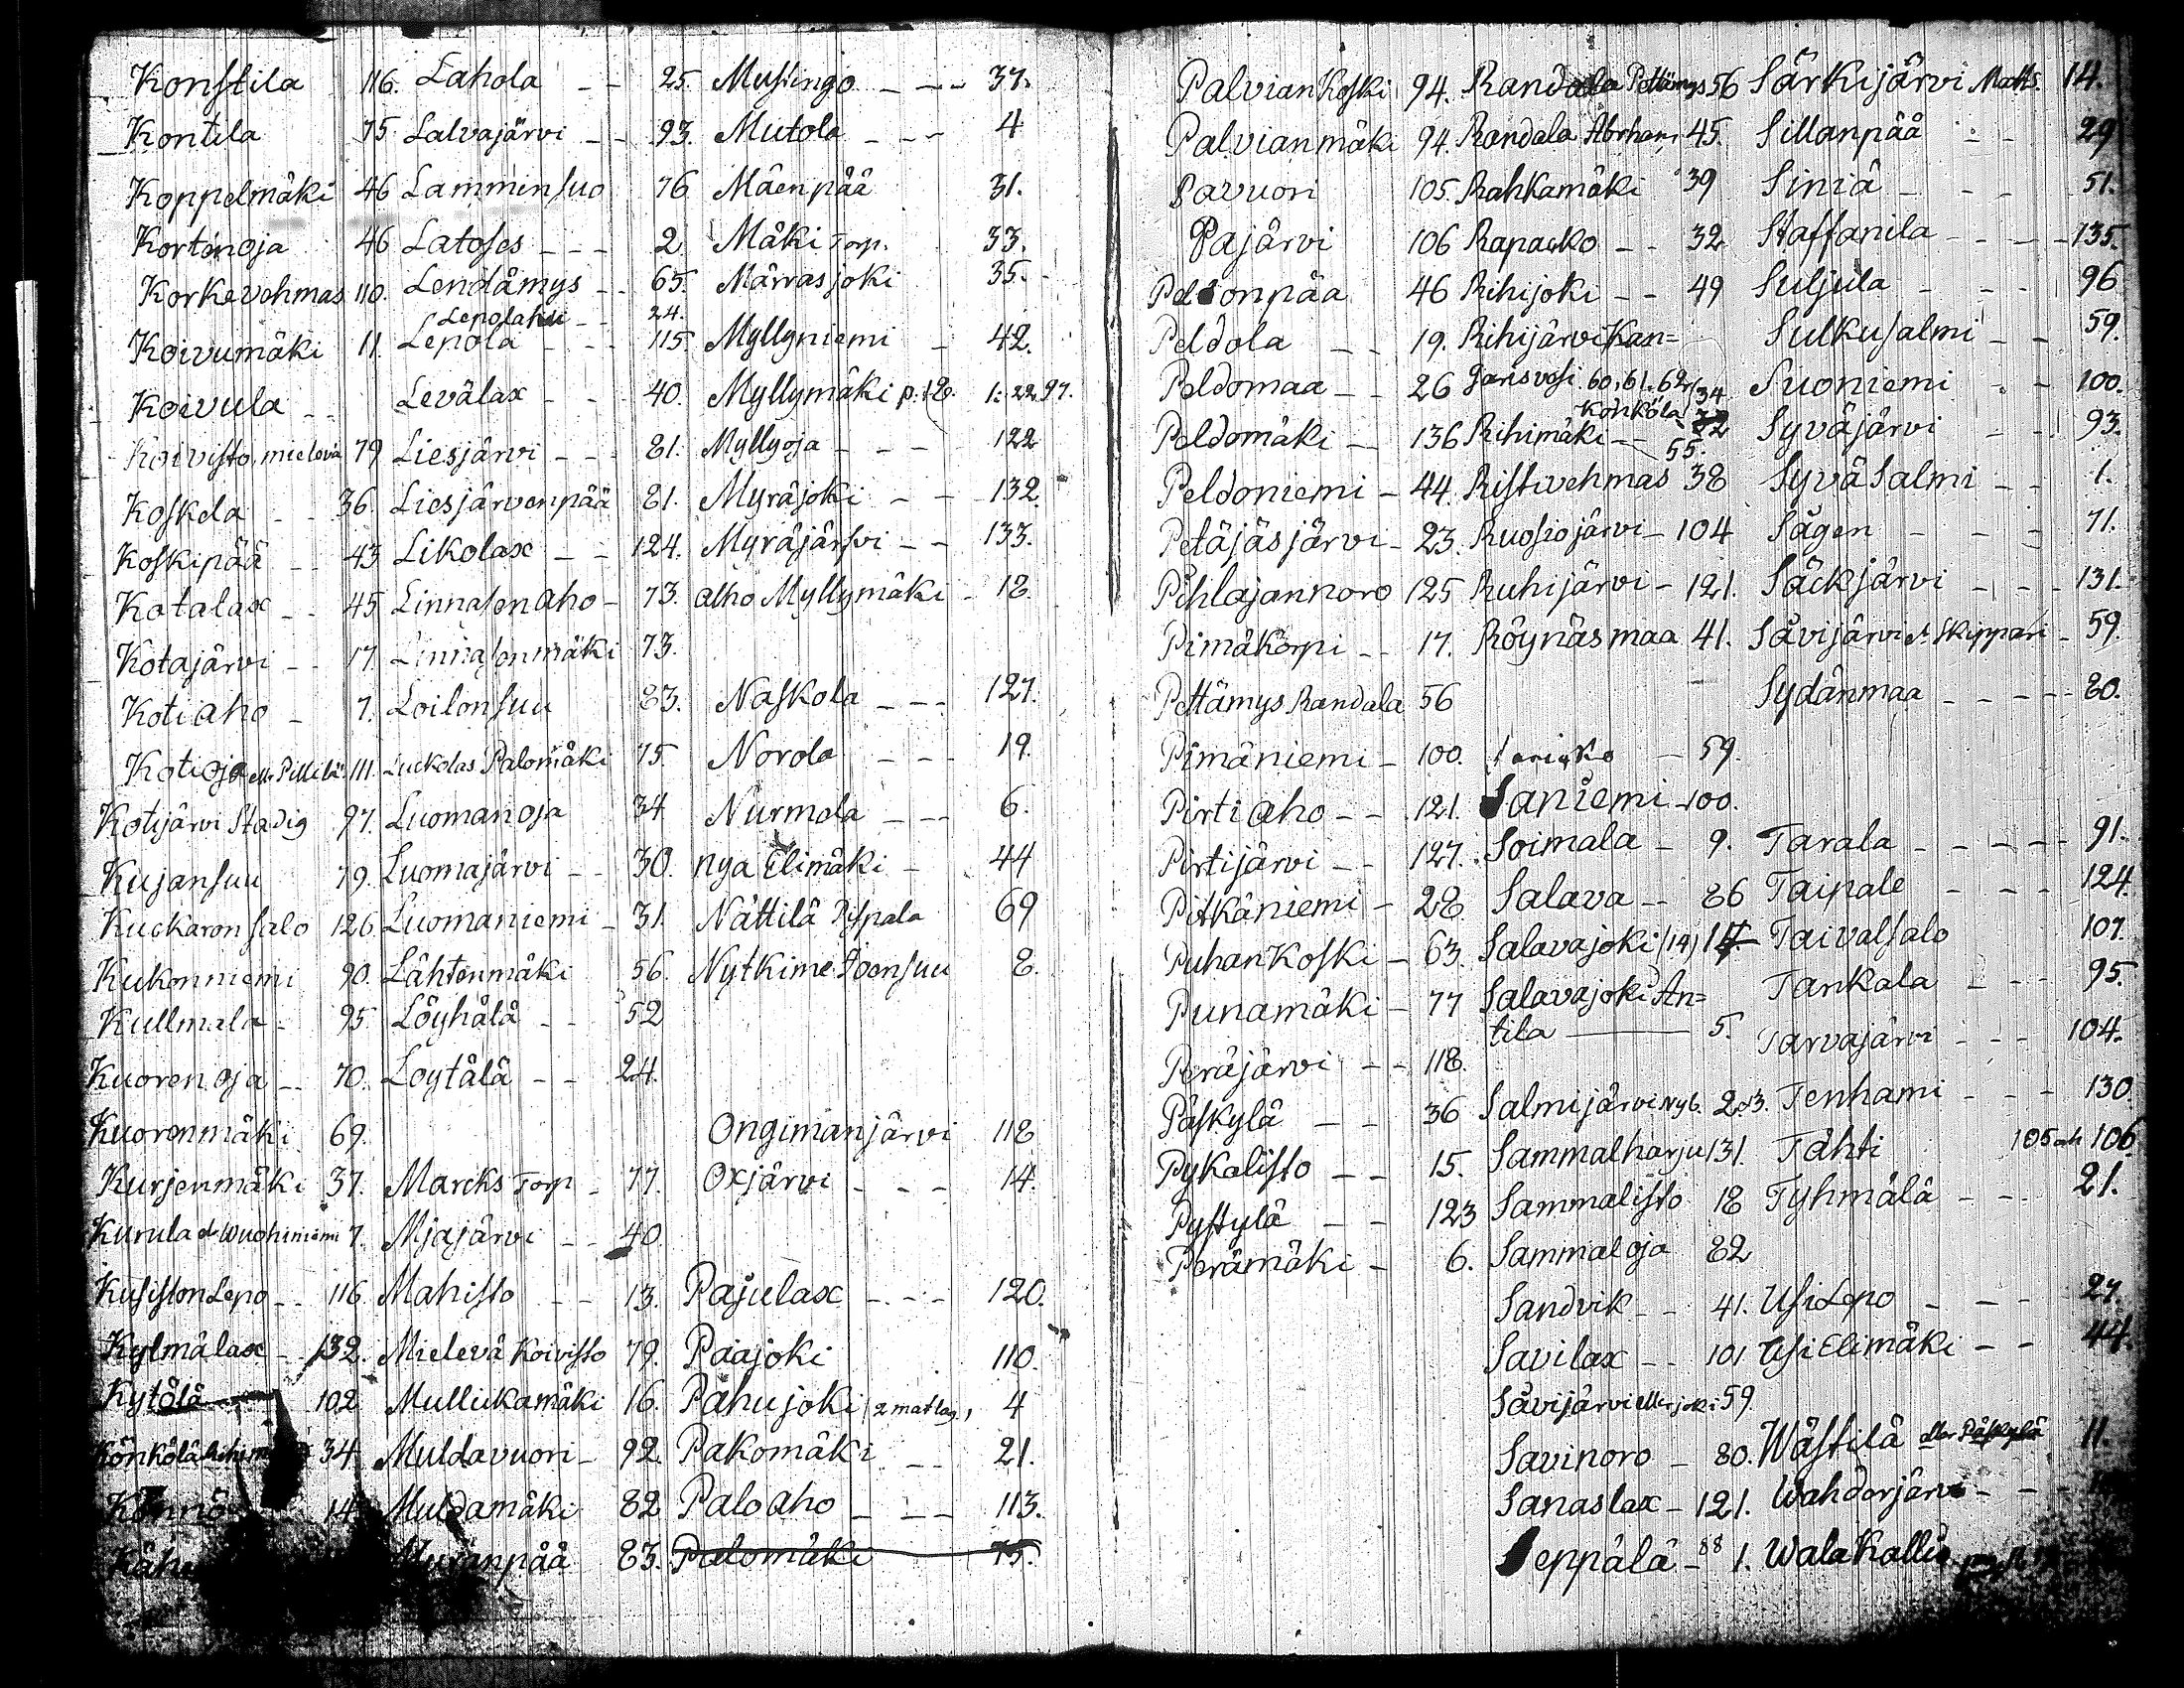 Konstila 116.
Kontila 75
Koppelmäki 46
Kortenoja 46
Korkevehmas 110.
Koivumäki 11.
Koivula
Koivisto, mielevä 79
Koskela 36.
Koskipää 43
Kotalax 45
Kotajärvi 17
Kotiaho 7.
Kotioja ell. Pillilä 111.
Kotijärvi Stadig 97.
Kujansuu 79.
Kuckaronsalo 126
Kukonniemi 90.
Kullmala 95
Kuorenoja 70.
Kuorenmäki 69.
Kurjenmäki 37.
Kurula el Wuohiniemi 7.
KusistonLepo 116
Kylmälax 132.
Kytölä 102
Könkölä 34.
Könnö 14
Lahola 25.
Lalvajärvi 93.
Lammensuo 76
Latoses 2
Lendämys 65.
Lepolahti 24.
Lepola 115
Levälax 40.
Liesjärvi 81.
Liesjärvenpää 81.
Likolax 124.
Linnasenaho 73.
Linnasenmäki 73.
Loilonsuu 83.
Luckolas Palomäki 75.
Luomanoja 34
Luomajärvi 30.
Luomaniemi 31.
Lähtenmäki 56.
Löyhälä 52
Löytälä 24.
Marcks Torp 77.
Mjajärvi 40.
Mahisto 13.
Mielevä Koivisto 79.
Mullikamäki 16.
Muldavuori 92.
Muldamäki 82
Myränpää 83.
Mustingo 37.
Mutola 4
Mäenpää 31.
Mäki Torp. 33.
Märrasjoki 35.
Myllyniemi 42.
Myllymäki
Myllyoja 122
Myräjoki 132
Myräjärvi 133.
alho Myllymäki 18.
Naskola 127.
Norola 19.
Nurmela 6.
nya Elimäki 44
Nättilä Pispala 69
Nytkime Joensuu 8.
Ongimanjärvi 118
Oxjärvi 14.
Pajulax 120.
Paajoki 110.
Pahujoki (2 matlag) 4
Pakomäki 21.
Paloaho 113.
Palomäki 75.
PalvianKoski 94.
Palvianmäki 94.
Pavuori 105.
Pajärvi 106
Peldonpää 46
Peldola 19.
Peldomaa 26
Peldomäki 136
Peldoniemi 44.
Petäjäsjärvi 23.
Pihlajannoro 125
Pimäkorpi 17.
Pettämys Randala 56
Pimäniemi 100.
Pirtiaho 121.
Pirtijärvi 127.
Pitkäniemi 28
PuhanKoski 63.
Punamäki 77
Peräjärvi 118.
Päskylä 36
Pykalisto 15.
Pystylä 123
Perämäki 6.
Randala Pettämys 56
Randala Abrham, 45.
Rahkamäki 39
Rapacko 32
Rihijoki 49
RihijärviKan=
gasvosi 60, 61. 62,
Könköla 34
Rihimäki 55.
Ristivehmas 38
Ruosiojärvi 104
Ruhijärvi 121.
Röynäsmaa 41.
59.
Saniemi 100.
Soimala 9.
Salava 86
Salavajoki (14)
Salavajoki An=
tila 5.
Salmijärvi Nyb. 2 o 3.
Sammalharju 131.
Sammalisto 18
Sammaloja 82
Sandvik 41.
Savilax 101
Sävijärvi eller joki 59.
Savinoro 80.
Sanaslax 121.
Seppälä 88 1.
Särkijärvi Matts. 14.
Sillanpää 29
Siniä 51.
Staffanila 135.
Suljula 96
Sulkusalmi 59.
Suoniemi 100.
Syväjärvi 93.
SyväSalmi 1.
Sägen 71.
Säckjärvi 131.
Sävijärvi el. Skippari 59.
Sydänmaa 80.
Tarala 91.
Taipale 124
Taivalsalo 107.
Tankala 95.
Tarvajärvi 104.
Tenhami 130
Tähti 105 och 106
Tyhmälä 21.
UsiLepo 27.
Usi Elimäki 44.
Wästilä eller Päskylä 11.
Wahderjärvi
WalaKallio